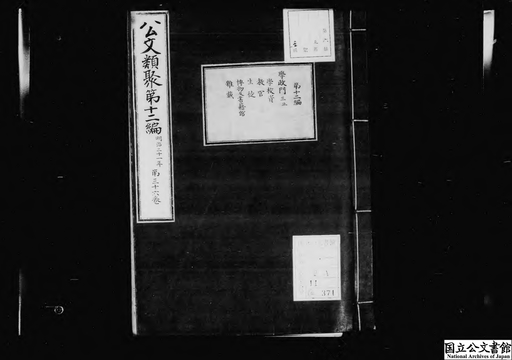 公文類聚第十二編 明治二十一年 第三十六巻
第十二編
學政門
學校
教官
生徒
博物書籍館
雜載
11
371
国立公文書館
National Archives of Japan